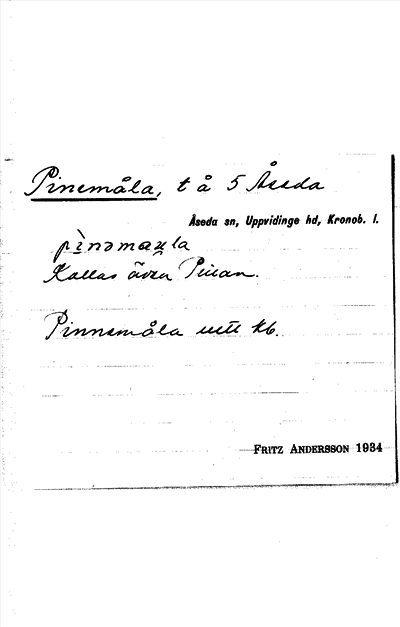 Pinemåla, t å 5 Åseda
Åseda sn, Uppvidinge hd, Kronob. l.
pìnəmaųla
Kallas även Pinan.
Pinnemåla utt kb.
FRITZ ANDERSSON 1934